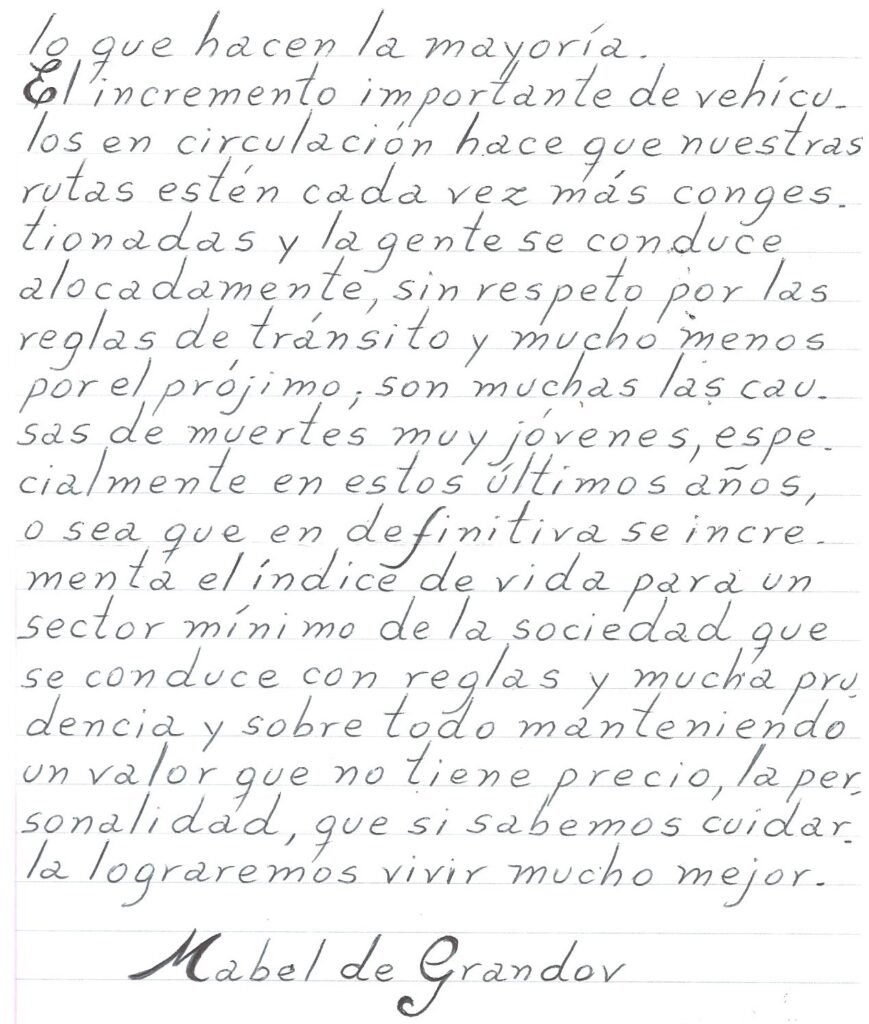 lo que hacen la mayoría.
El incremento importante de vehícu-
los en circulación hace que nuestras
rutas estén cada vez más conges-
tionadas y la gente se conduce
alocadamente, sin respeto por las
reglas de tránsito y mucho menos
por el prójimo; son muchas las cau-
sas de muertes muy jóvenes, espe-
cialmente en estos últimos años,
o sea que en definitiva se incre-
menta el índice de vida para un
sector mínimo de la sociedad que
se conduce con reglas y mucha pru-
dencia y sobre todo manteniendo
un valor que no tiene precio, la per-
sonalidad, que si sabemos cuidar-
la lograremos vivir mucho mejor.
Mabel de Grandov